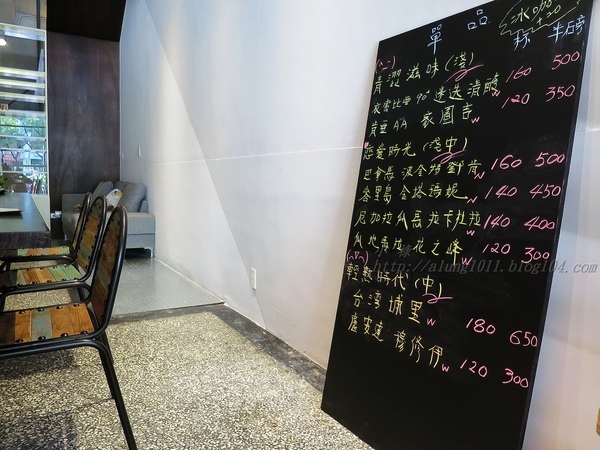 單品
冰咖 +20
杯 半磅
青澀滋味(淺)
衣索比亞 90+ 迷迭漬酶 w 160 500
肯亞AA 家園吉 w 120 350
戀愛時光(淺中)
巴拿馬 波奎特 鄧肯 w 160 500
峇里島 金塔瑪妮 w 140 450
尼加拉瓜 長拉卡杜拉 w 140 400
瓜地馬拉 花之峰 w 120 300
http://alung1011.blog104.com
輕熟時代(中)
台灣 埔里 w 180 650
盧安達 穆修伊 w 120 300